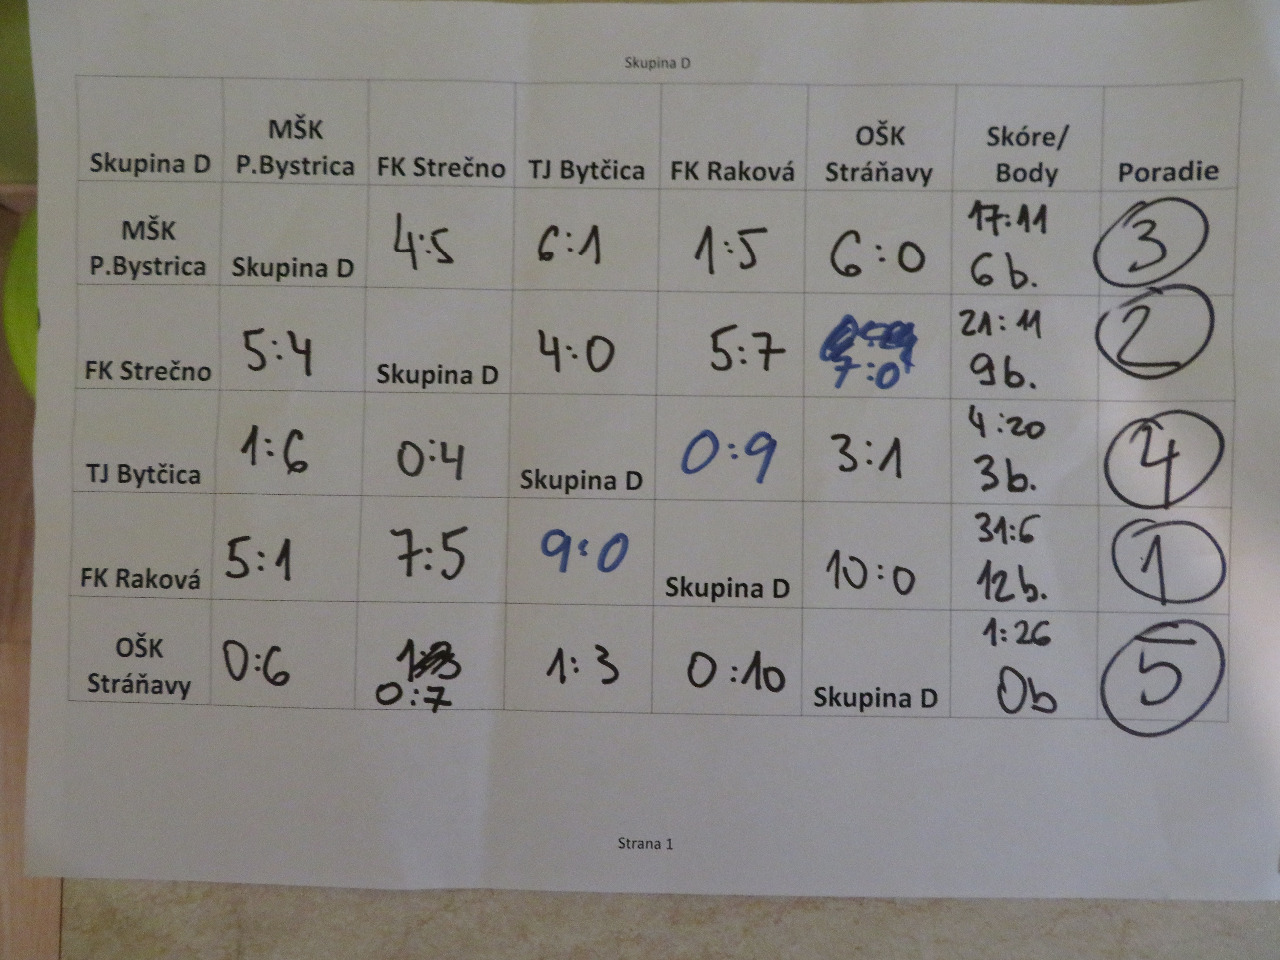 Skupina D
Skupina D MŠK P.Bystrica FK Strečno TJ Bytčica FK Raková OŠK Stráňavy Skóre/ Body Poradie
MŠK P.Bystrica Skupina D 4:5 6:1 1:5 6:0 17:11 6b. 3
FK Strečno 5:4 Skupina D 4:0 5:7 7:0 21:11 9b. 2
TJ Bytčica 1:6 0:4 Skupina D 0:9 3:1 4:20 3b. 4
FK Raková 5:1 7:5 9:0 Skupina D 10:0 31:6 12b. 1
OŠK Stráňavy 0:6 0:7 1:3 0:10 Skupina D 1:26 0b 5
Strana 1